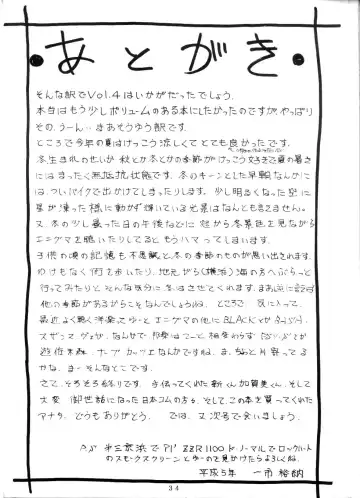 ・あとがき・
そんな訳でVol.4はいかがだったでしょう。
本当はもう少しボリュームのある本にしたかったのですが、やっぱり
その、うーん…まあそうゆう訳です。
ところで今年の夏はけっこう涼しくてとても良かったです。
冬生まれのせいか秋とか冬とかの季節がけっこう好きで夏の暑さ
にはまったく無抵抗状態です。冬のキーンとした早朝なんかに
は、ついバイクで出かけてしまったりします。少し明るくなった空に
星が凍った様に動かず輝いている光景はなんとも言えません。
又、冬の少し曇った日の午後などに 窓から冬景色を見ながら
エニグマを聴いたりしてるともうハマってしまいます。
子供の頃の記憶も不思議と冬の季節のものが思い出されます。
わけもなく街を歩いたり、地元がら(横浜)海の方へぶらっと
行ってみたりとそんな気分に冬はさせてくれます。まあ
他の季節があるからこそなんでしょうね。ところで
最近よく聴く洋楽は エニグマの他にBLACK
スザンヌ・ヴェガ、なんかで
遊佐未森、ナーブ カッツェなんかですね。ま、ちょっと片寄ってる
かな。ま、そんなとこです。
さて、そろそろ終りです。手伝ってくれた新くん 加賀美くん、そして
大変 御世話になった日本コムのあき、そして、この本を買ってくれた
アナタ、どうもありがとう。 では、又次号で会いましょう。
P.S 第三京浜で ZZR1100 ノーマルでロックハート
のスモークスクリーン 見かけたらよろしくね。
平成5年 一市 裕納
34